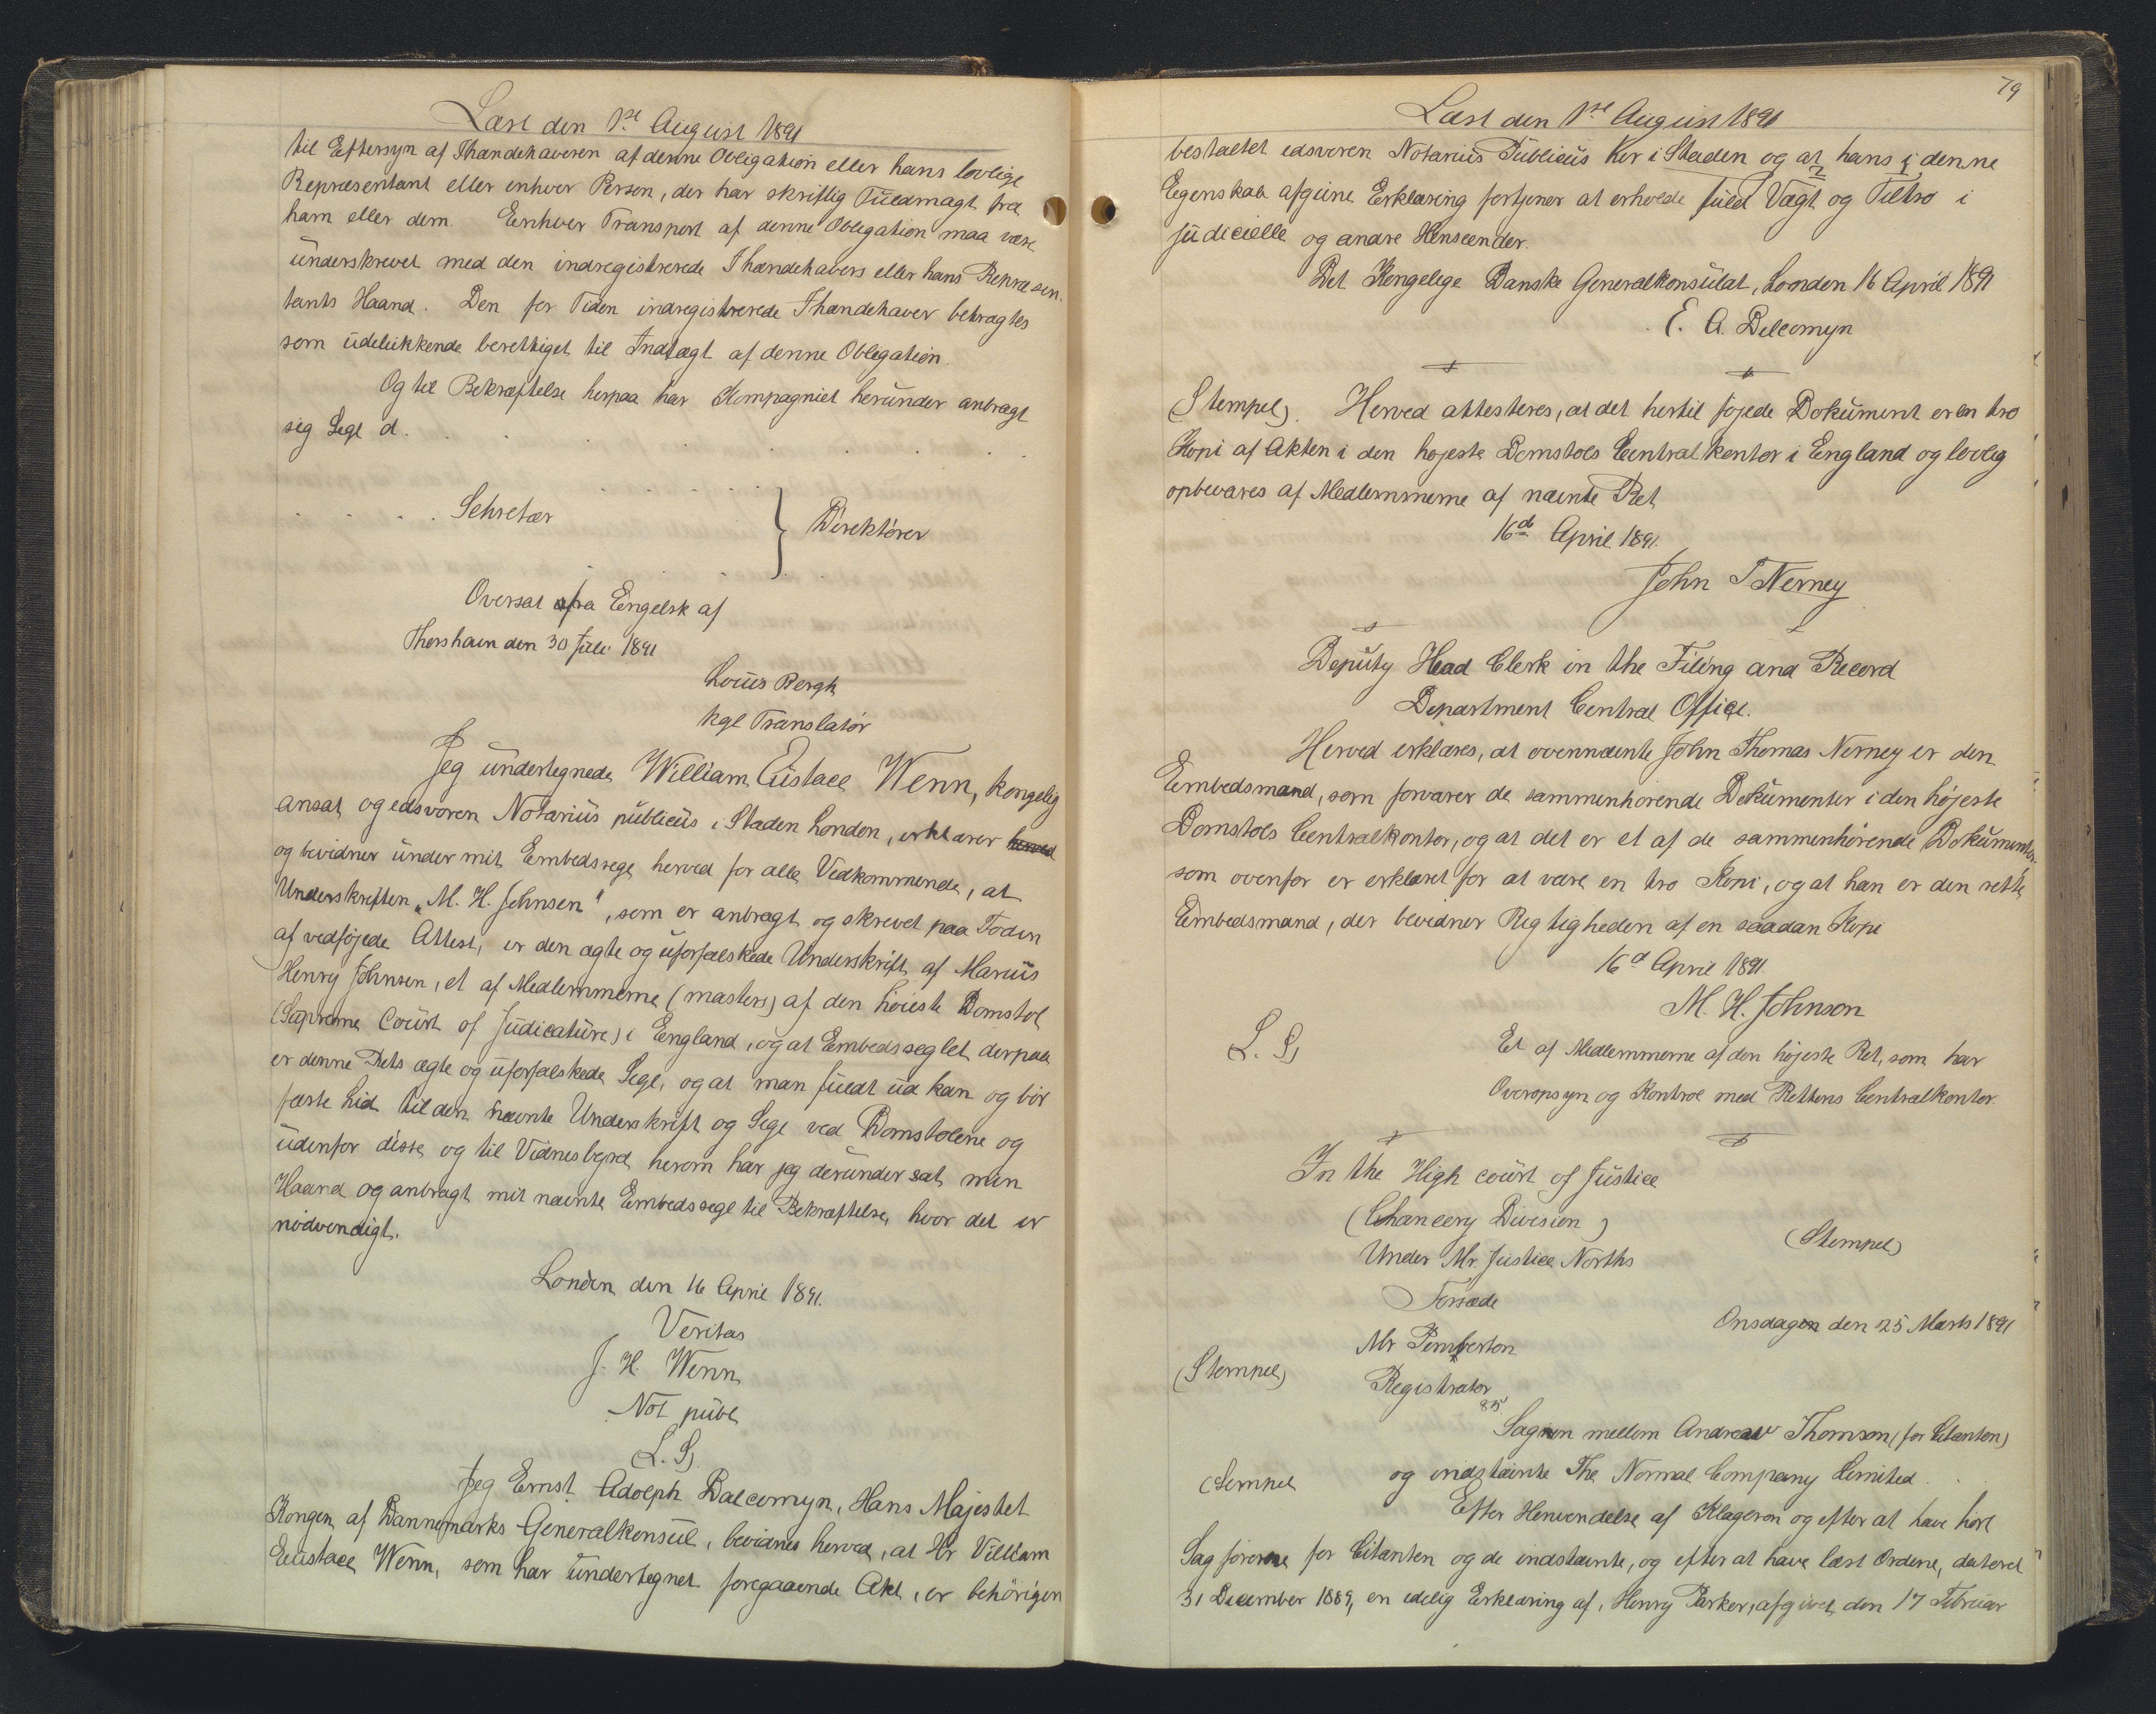 Læst den 1ste August 1891
til Eftersyn af Ihændehaveren af denne Obligation eller hans lovlige
Repræsentant eller enhver Person, der har skriftlig Fuldmagt fra
ham eller dem. Eenhver Transport af denne Obligation maa være
underskrevet med den indregistrerede Ihændehavers eller hans Repræsen-
tants Haand. Den for Tiden indregistrerede Ihændehaver betragtes
som udelukkende berettiget til Indtægt af denne Obligation.
Og til Bekræftelse herpaa har Kompagniet herunder anbragt
sig Segl d.
Sekretær } Direktører
Oversat fra Eengelsk af
Thorshavn den 30 Juli 1891
Louis Bergh
kgl Translatør
Jeg undertegnede William Eustace Wenn, kongelig
ansat og edsvoren Notarius publicus i Staden London, erklærer herved
og bevidner under mit Embedssegl herved for alle Vedkommende, at
Underskriften „M. H. Johnsen", som er anbragt og skrevet paa Foden
af vedføjede Attest, er den ægte og uforfalskede Underskrift af Marius
Henry Johnsen, et af Medlemmerne (masters) af den høieste Domstol
(Supreme Court of Judicature) i Eengland, og at Embedsseglet derpaa
er denne Rets ægte og uforfalskede Segl, og at man fuldt ud kan og bør
fæste Lid til den nævnte Underskrift og Segl ved Domstolene og
udenfor disse og til Vidnesbyrd herom har jeg derunder sat min
Haand og anbragt mit nævnte Eembedssegl til Bekræftelse, hvor det er
nødvendigt.
London den 16 April 1891.
Veritas
J. H. Wenn
Not publ
L. S.
Jeg Ernst Adolph Dalcomyn, Hans Majestet
Kongen af Dannemarks Generalkonsul, bevidner herved, at Hr Villiam
Eustace Wenn, som har undertegnet foregaaende Akt, er behørigen
79
Læst den 1ste August 1891
bestaltet edsvoren Notarius Publicus her i Staden og at hans i denne
Eegenskab afgivne Eerklæring fortjener at erholde fuld Vægt og Tiltro i
judicielle og andre Henseender.
Det Kongelige Danske Generalkonsulat, London 16 April 1891
E. A. Delcomyn
(Stempel). Herved attesteres, at det hertil føjede Dokument er en tro
Kopi af Akten i den højeste Domstols Centralkontor i England og lovlig
opbevares af Medlemmerne af nævnte Ret
16d April 1891.
John T Nerney
Deputy Head Clerk in the Filing and Record
Department Central Office.
Herved erklæres, at ovennævnte John Thomas Nerney er den
Eembedsmand, som forvarer de sammenhørende Dokumenter i den højeste
Domstols Centralkontor, og at det er et af de sammenhørende Dokumenter
som ovenfor er erklæret for at være en tro Kopi, og at han er den rette
Eembedsmand, der bevidner Rigtigheden af en saadan Kopi
16d April 1891.
M. H. Johnson
L. S. Et af Medlemmerne af den højeste Ret, som har
Overopsyn og Kontrol med Rettens Centralkontor.
In the High court of Justice
(Chancery Division)
(Stempel)
Under Mr. Justice Norths
Forsæde
Onsdagen den 25 Marts 1891
Mr Pemberton
(Stempel) Registrator
Sagen mellem Andreaw Thomson (for Citanten)
(Sempel og indstævnte The Normal Company Limited.
Efter Henvendelse af Klageren og efter at have hørt
Sagførerne for Citanten og de indstævnte, og efter at have læst Ordene, dateret
31 December 1889, en edelig Erklæring af, Henry Parker, afgivet den 17 Februar